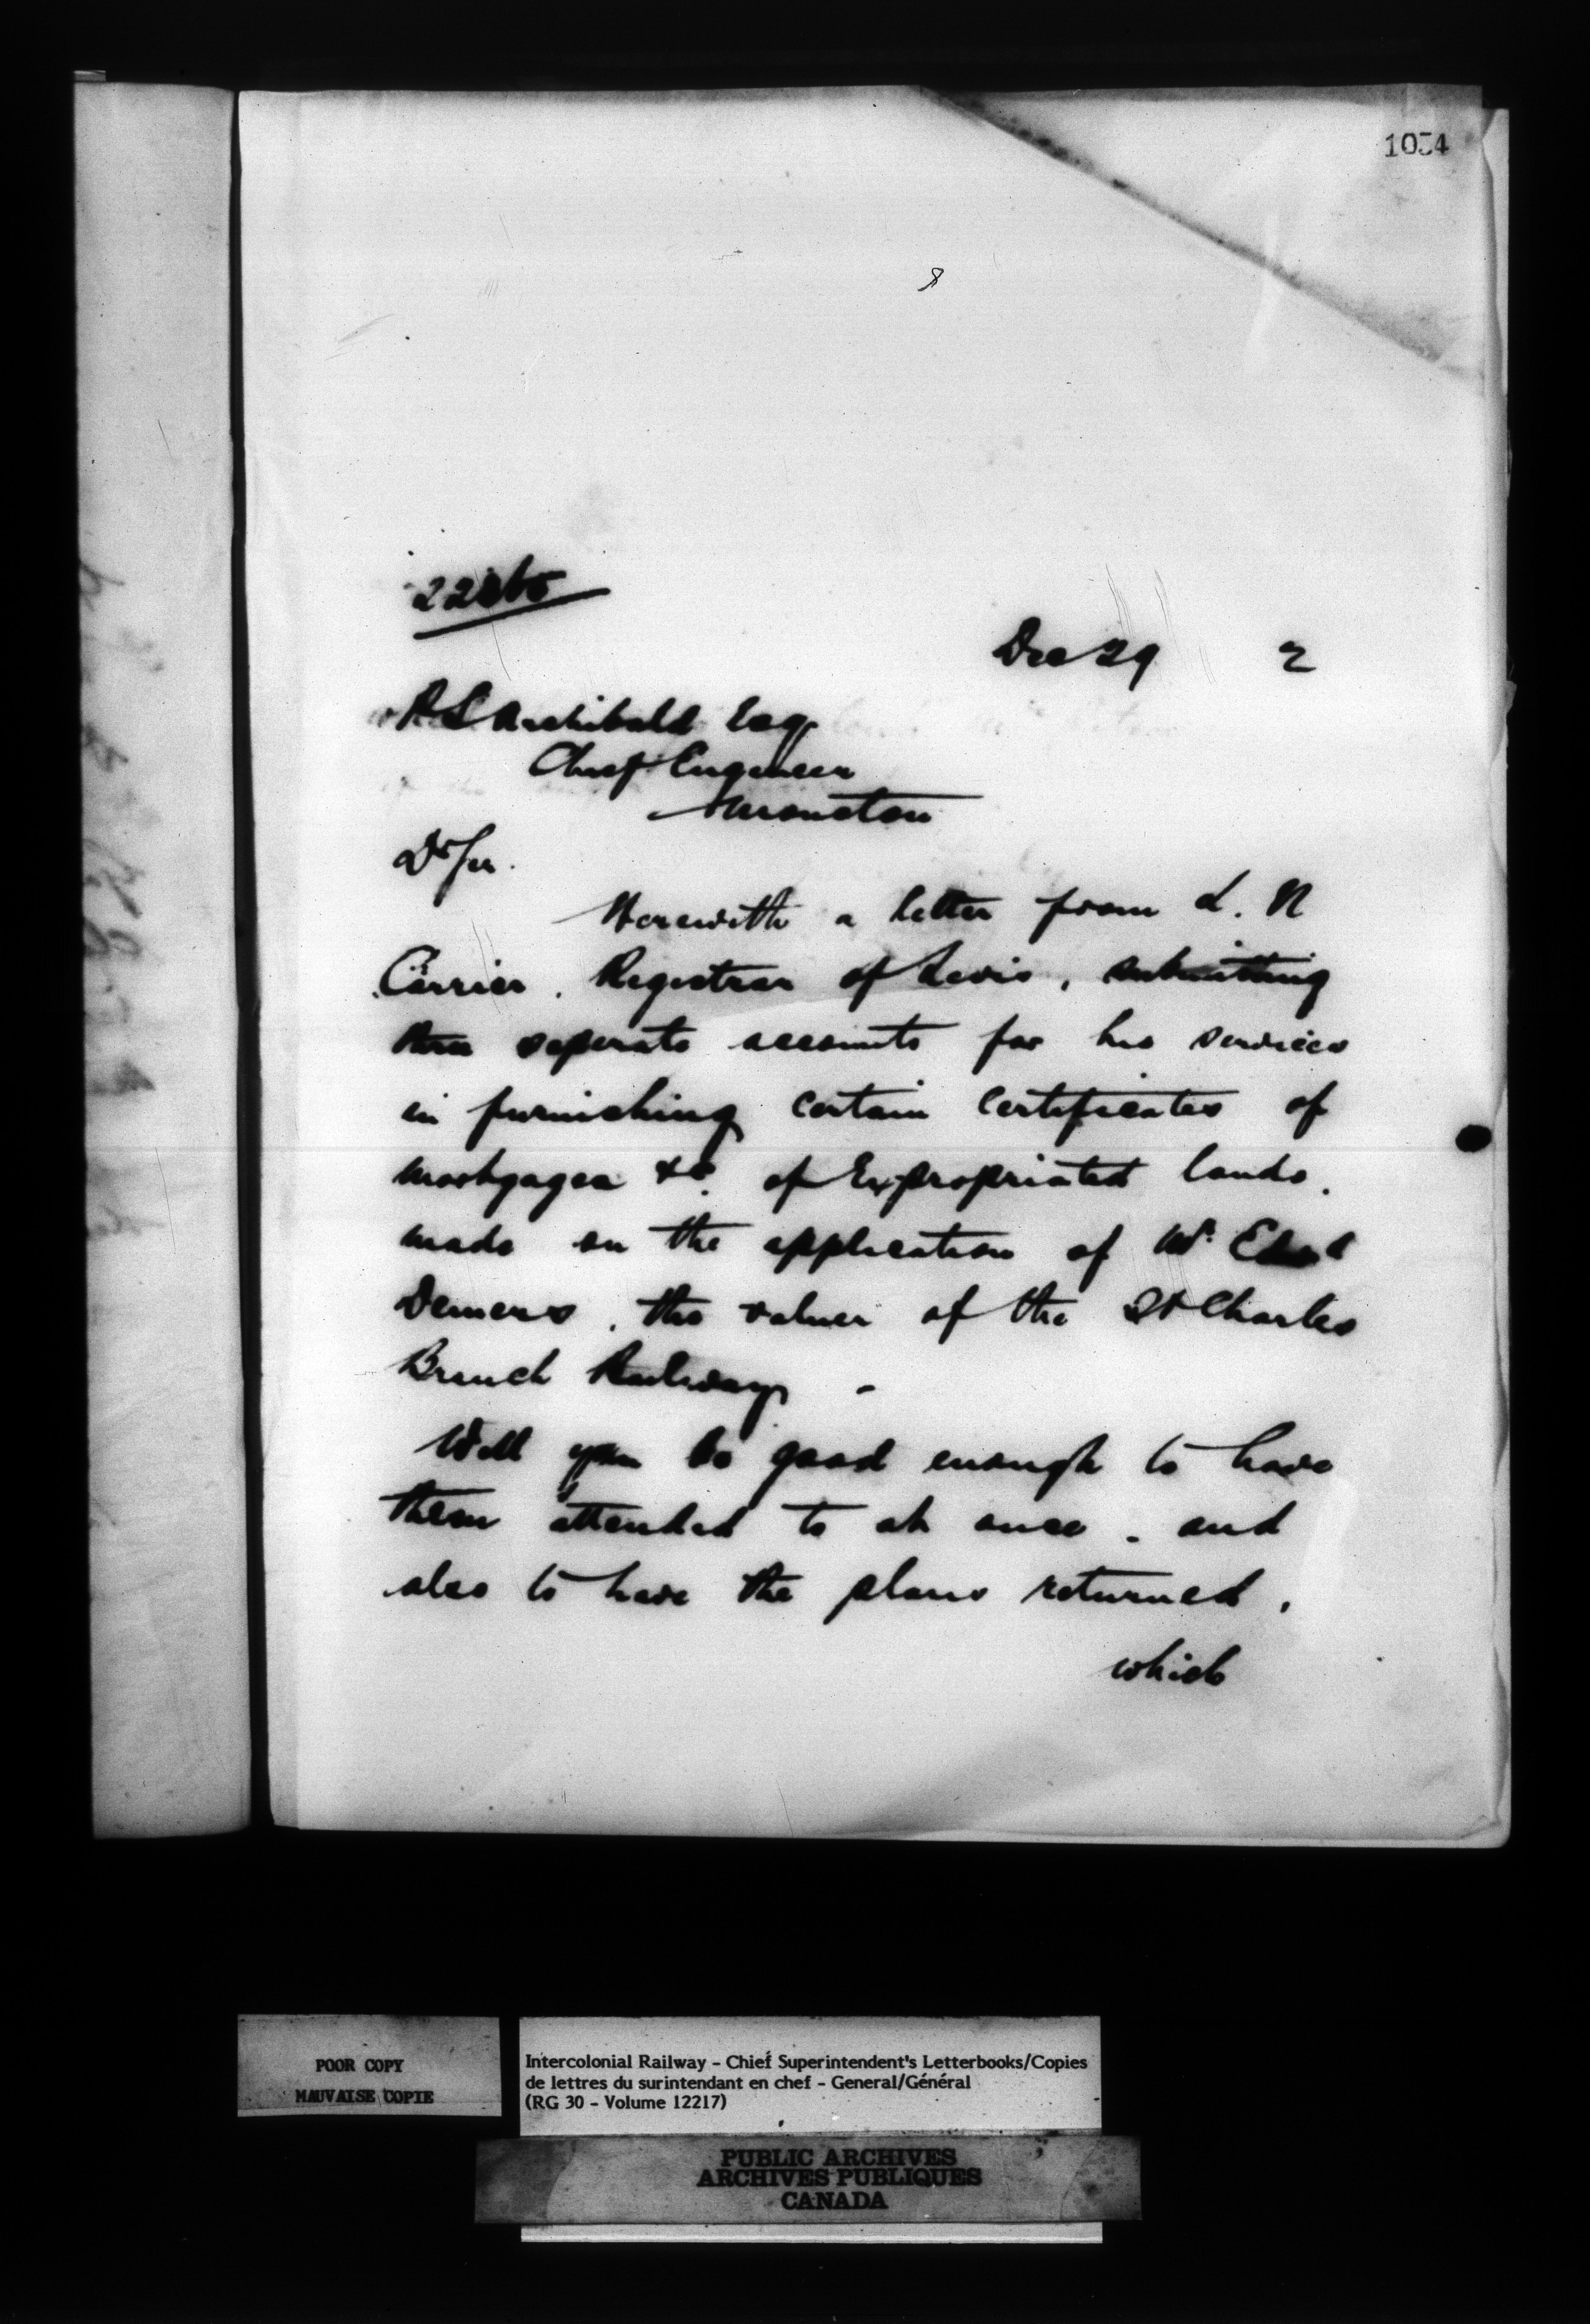 1054
22865
Dec 29 2
P S Archibald Esq
Chief Engineer
Moncton
Dr Sir.
Herewith a letter from L. N
Carrier. Registrar of Levis, submitting
three seperate accounts for his services
in furnishing certain certificates of
mortgages &c. of Expropriated lands.
made on the application of Mr.
Demers, the valuer of the St Charles
Branch Railway -
Will you be good enough to have
them attended to at once. and
also to have the plans returned,
which
POOR COPY
MAUVAISE COPIE
Intercolonial Railway - Chief Superintendent's Letterbooks/Copies
de lettres du surintendant en chef - General/Général
(RG 30 - Volume 12217)
PUBLIC ARCHIVES
ARCHIVES PUBLIQUES
CANADA